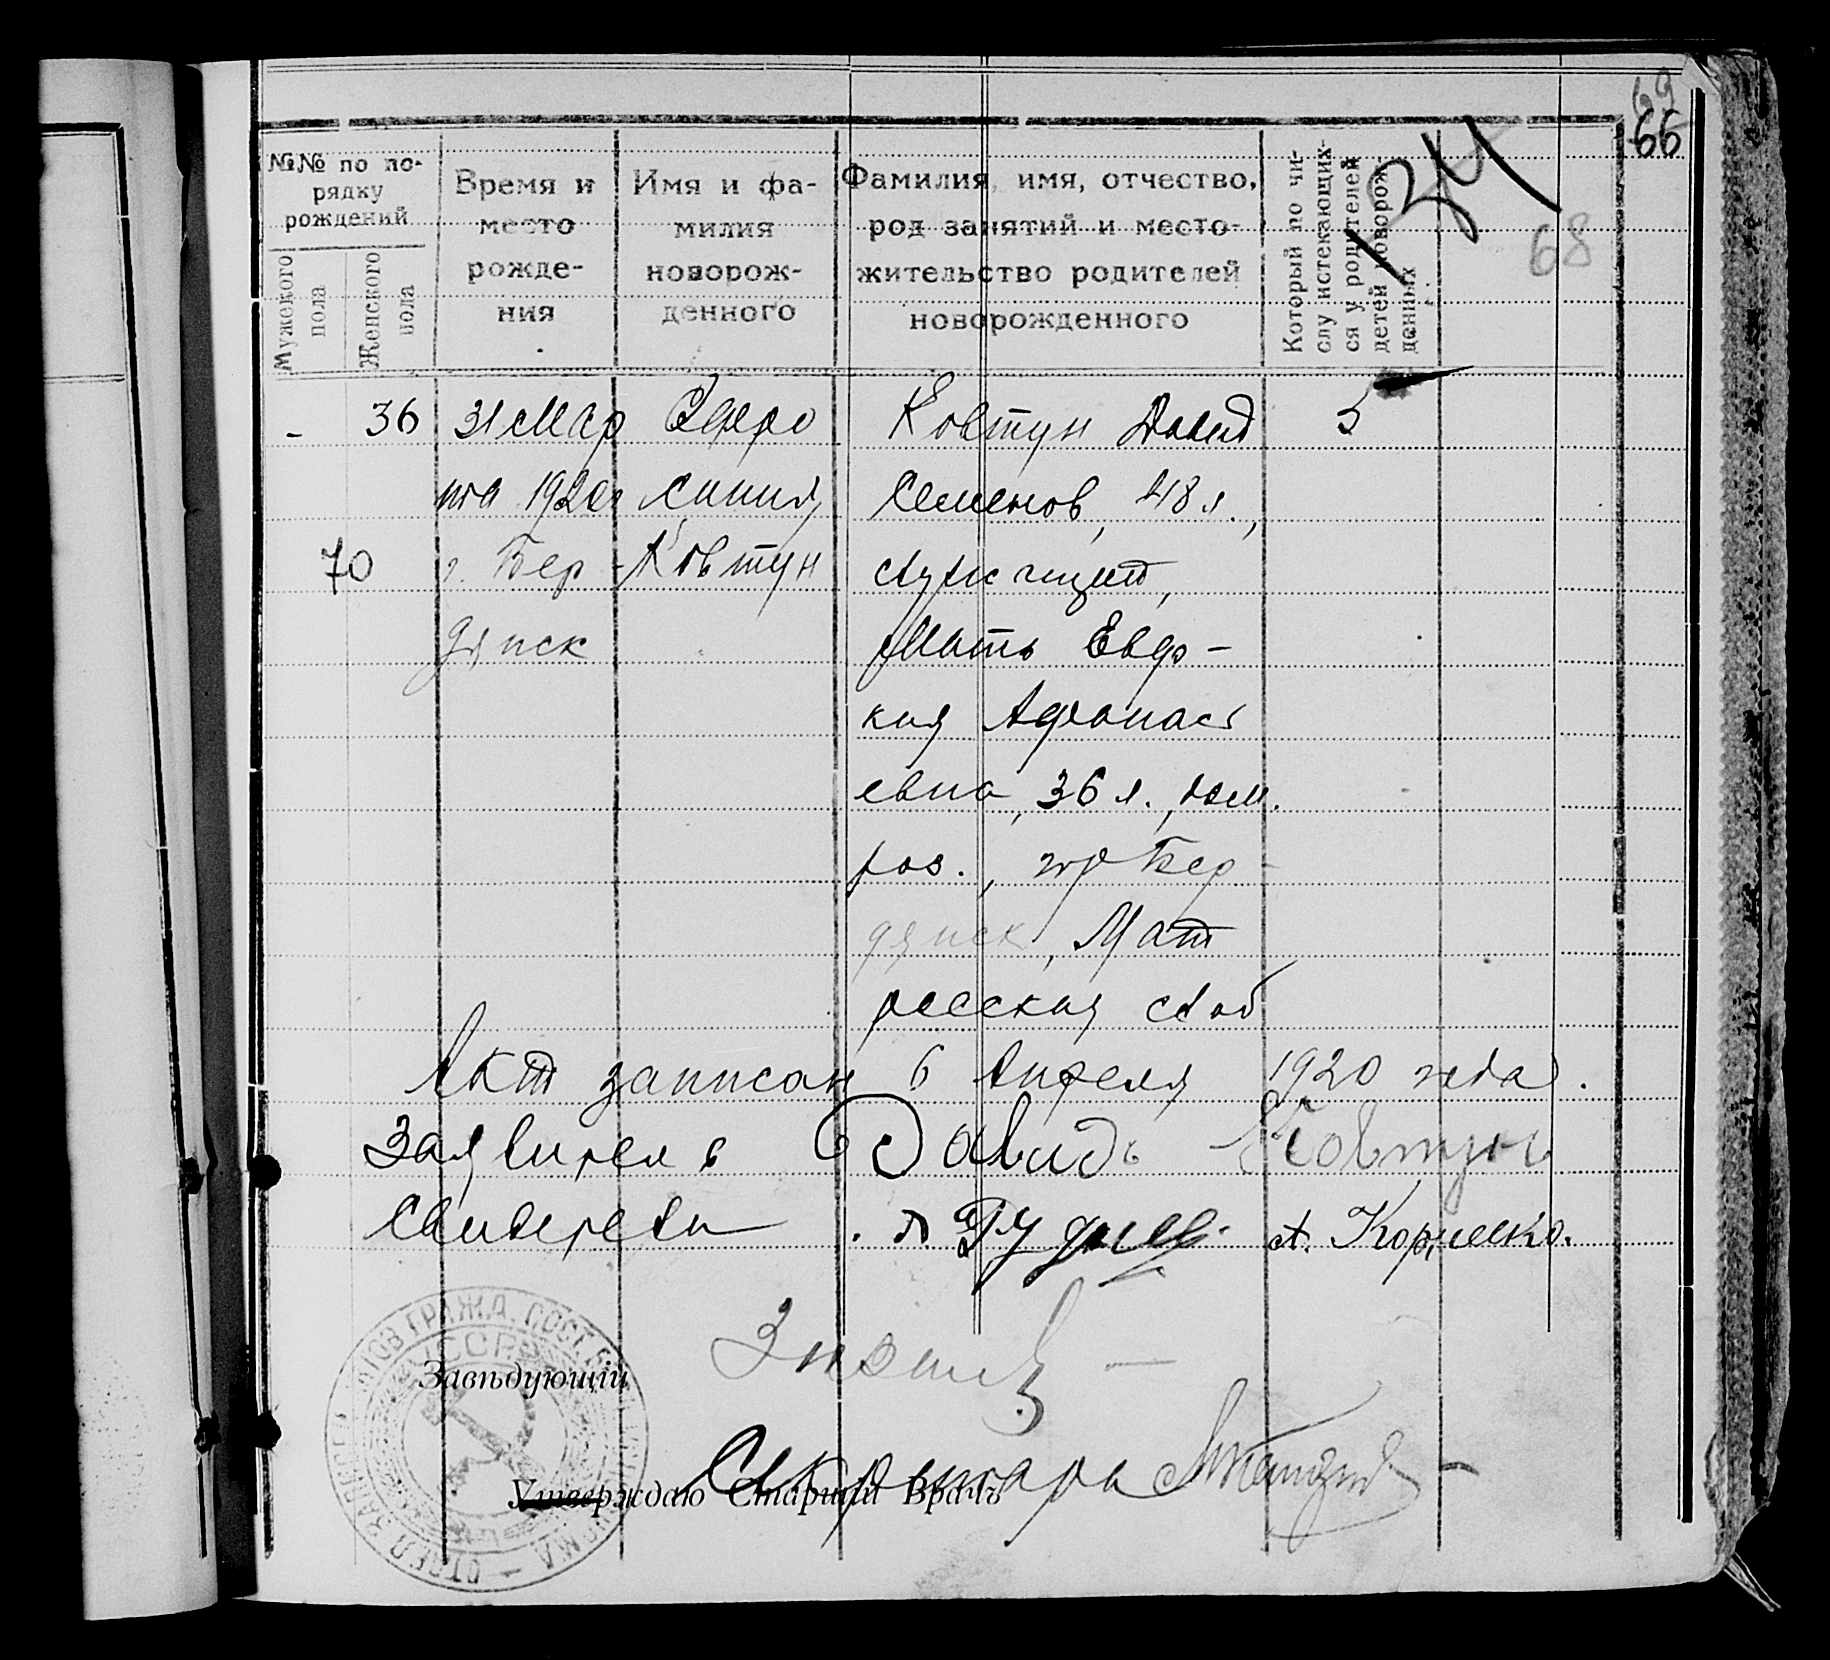 69
66
134
68
№№ по по-
рядку
рождений
Мужеского
пола
Женского
пола
Время и
место
рожде-
ния
Имя и фа-
милия
новорож-
денного
Фамилия, имя, отчество,
род занятий и место-
жительство родителей
новорожденного
Который по чи-
слу истекающих-
ся у родителей
детей новорож-
денных
- 36 31 Мар Евфро 5
та 1920 г синия
70 г. Бер- Ковтун
дянск
Ковтун Давид
Семенов, 48 л.,
Мать Евдо-
кия Афанась
евна, 36 л., дом.
хоз., гор Бер-
дянск, Мат
росская слоб
Акт записан 6 Апреля 1920 года.
Заявитель Давидъ Ковтунъ
Свидетели
Завѣдующій
Секретарь
Утверждаю Старшій Врачъ
УССР